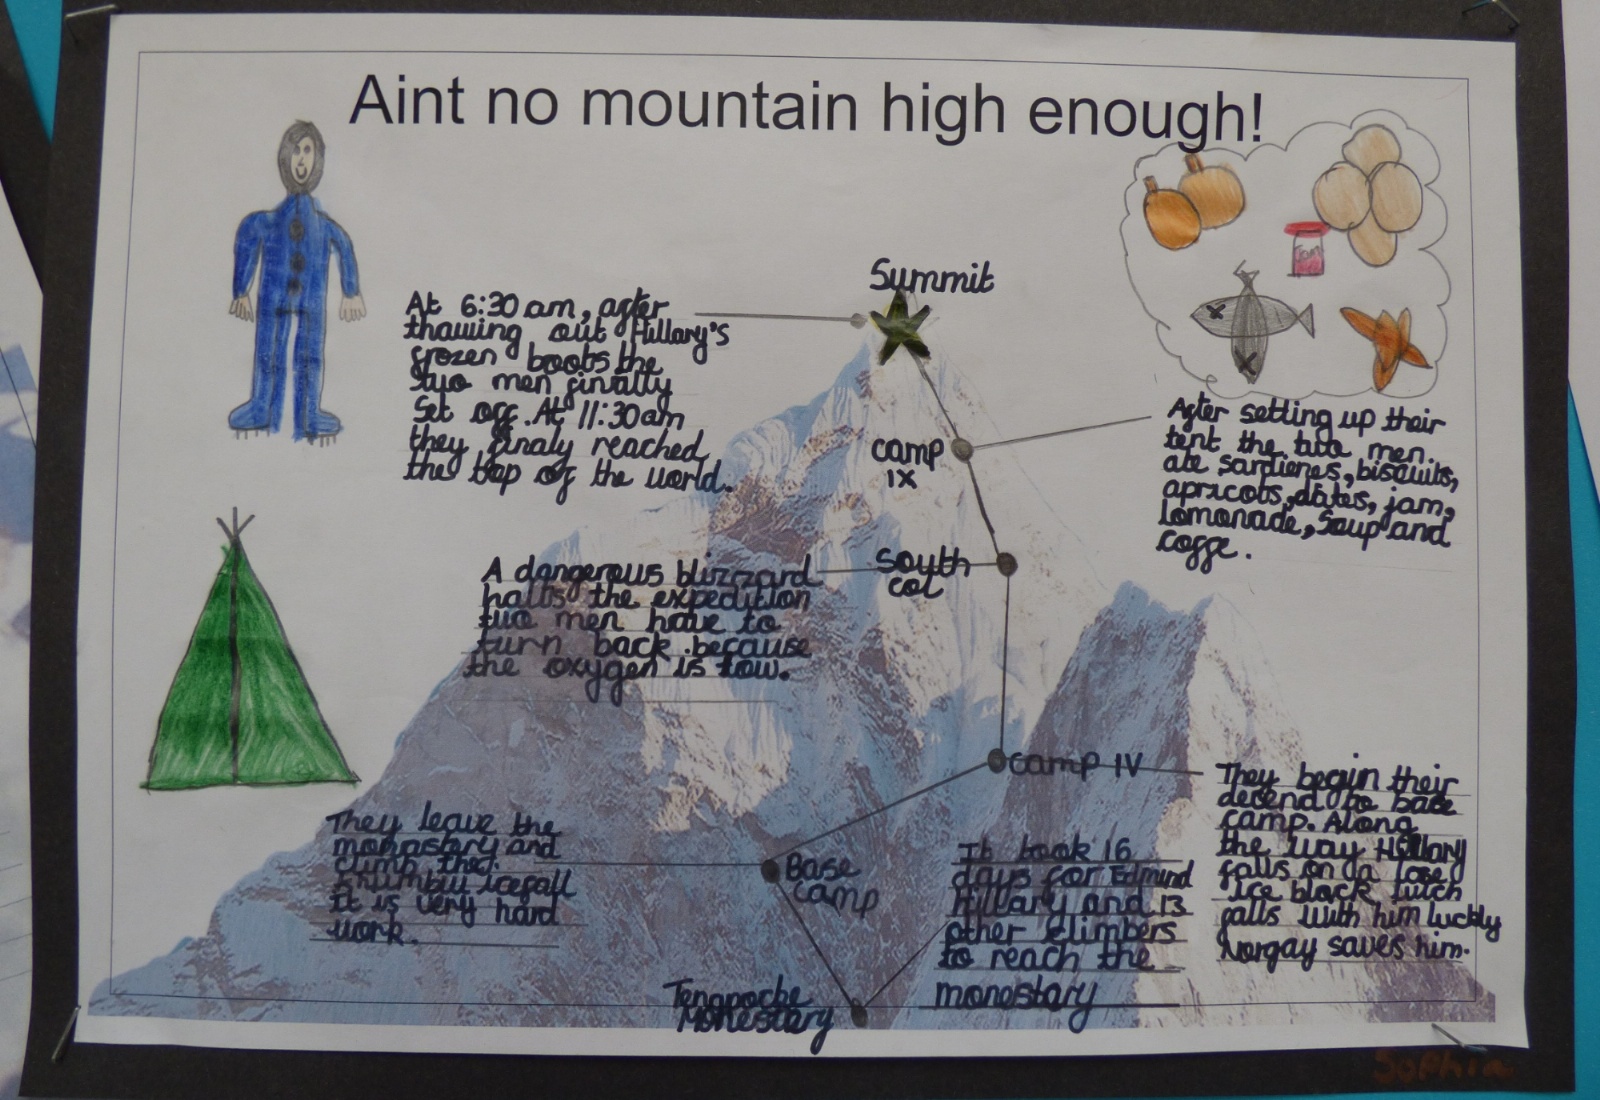 Aint no mountain high enough!
Summit
At 6:30 am, after
thawing out Hillary's
frozen boots the
two men finially
Set off. At 11:30am
they finaly reached
the top of the world.
Jam
camp
IX
After setting up their
tent the two men.
ate sardienes, biscuits,
apricots, dates, jam,
lomonade, Soup and
coffe.
A dangerous blizzard
halts the expedition
two men have to
turn back .because
the oxygen is low.
South
col
camp IV
They begin their
decend to base
camp. Along
the way Hillary
falls on a lose
ice block wich
falls with him luckly
Norgay saves him.
They leave the
monastary and
climb the
Khumbu icefall
It is very hard
work.
Base
camp
It took 16
days for Edmund
Hillary and 13
other climbers
to reach the
monestary
Tengpoche
Monestery
Sophia